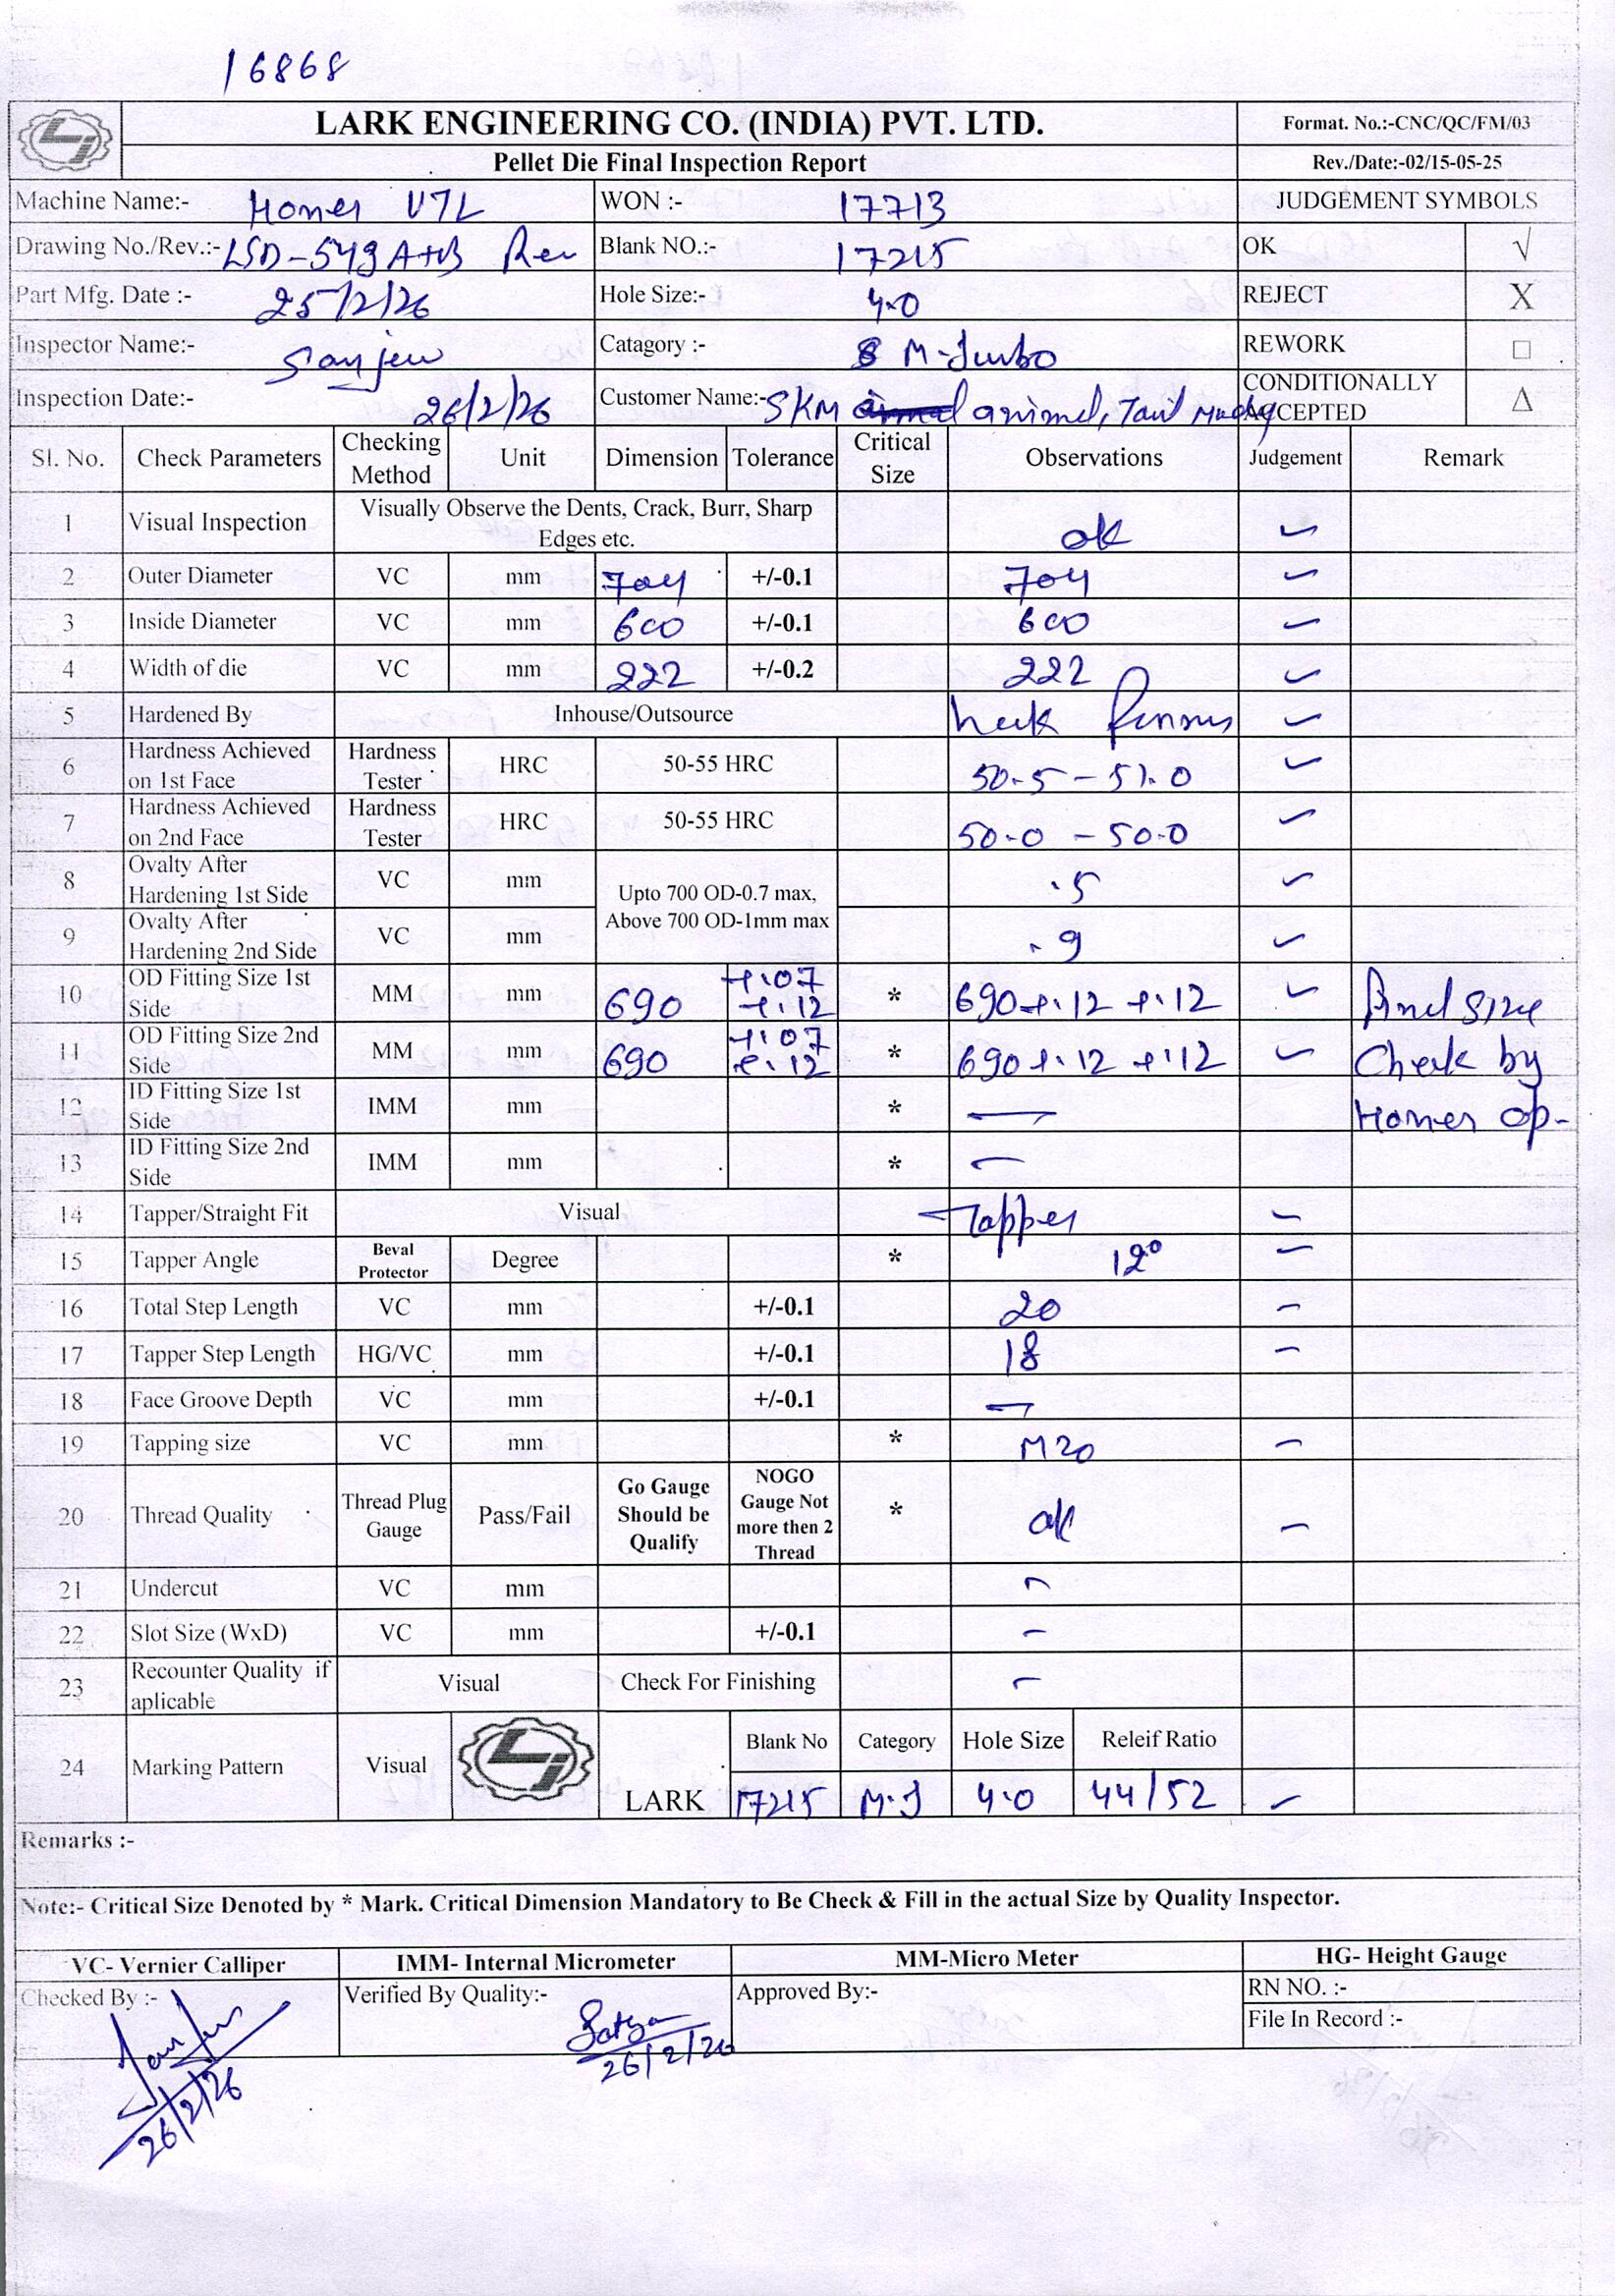 16868
LARK ENGINEERING CO. (INDIA) PVT. LTD.
Format. No.:-CNC/QC/FM/03
Pellet Die Final Inspection Report
Rev./Date:-02/15-05-25
Machine Name:- Homer VTL WON :- 17713 JUDGEMENT SYMBOLS
Drawing No./Rev.:- LSD-549 A+B Rev Blank NO.:- 17215 OK √
Part Mfg. Date :- 25/2/26 Hole Size:- 4.0 REJECT X
Inspector Name:- Sanjeev Catagory :- M-Turbo REWORK □
Inspection Date:- 26/2/26 Customer Name:- SKM animel, CONDITIONALLY ACCEPTED Δ
Sl. No. Check Parameters Checking Method Unit Dimension Tolerance Critical Size Observations Judgement Remark
1 Visual Inspection Visually Observe the Dents, Crack, Burr, Sharp Edges etc. ok ✓
2 Outer Diameter VC mm 704 +/-0.1 704 ✓
3 Inside Diameter VC mm 600 +/-0.1 600 ✓
4 Width of die VC mm 222 +/-0.2 222 ✓
5 Hardened By Inhouse/Outsource ✓
6 Hardness Achieved on 1st Face Hardness Tester HRC 50-55 HRC 50.5 - 51.0 ✓
7 Hardness Achieved on 2nd Face Hardness Tester HRC 50-55 HRC 50.0 - 50.0 ✓
8 Ovalty After Hardening 1st Side VC mm Upto 700 OD-0.7 max, Above 700 OD-1mm max .5 ✓
9 Ovalty After Hardening 2nd Side VC mm .9 ✓
10 OD Fitting Size 1st Side MM mm 690 +.07 +.12 * 690+.12 +.12 ✓ size
11 OD Fitting Size 2nd Side MM mm 690 +.07 +.12 * 690+.12 +.12 ✓ Check by
12 ID Fitting Size 1st Side IMM mm * — Homer op-
13 ID Fitting Size 2nd Side IMM mm * —
14 Tapper/Straight Fit Visual Tapper ✓
15 Tapper Angle Beval Protector Degree * 12° ✓
16 Total Step Length VC mm +/-0.1 20 ✓
17 Tapper Step Length HG/VC mm +/-0.1 18 ✓
18 Face Groove Depth VC mm +/-0.1 —
19 Tapping size VC mm * M20 ✓
20 Thread Quality Thread Plug Gauge Pass/Fail Go Gauge Should be Qualify NOGO Gauge Not more then 2 Thread * ok ✓
21 Undercut VC mm —
22 Slot Size (WxD) VC mm +/-0.1 —
23 Recounter Quality if aplicable Visual Check For Finishing —
24 Marking Pattern Visual LARK Blank No Category Hole Size Releif Ratio
17215 M.J 4.0 44/52 ✓
Remarks :-
Note:- Critical Size Denoted by * Mark. Critical Dimension Mandatory to Be Check & Fill in the actual Size by Quality Inspector.
VC- Vernier Calliper IMM- Internal Micrometer MM-Micro Meter HG- Height Gauge
Checked By :- Verified By Quality:- Approved By:- RN NO. :-
File In Record :-
Satya
26/2/26
26/2/26